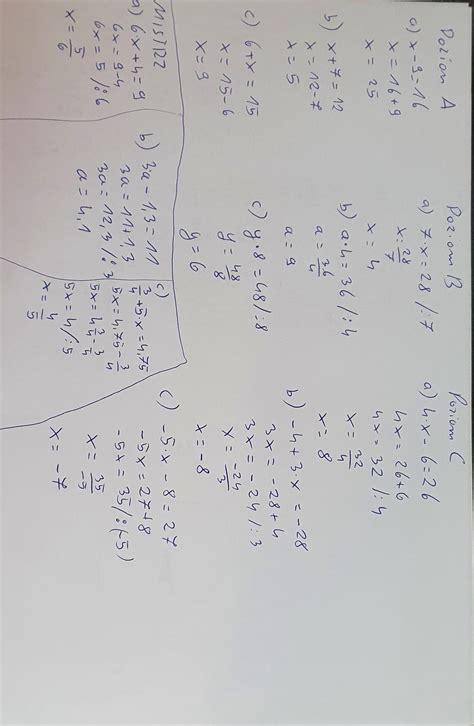 Poziom A
a) x-9=16
x=16+9
x=25
b) x+7=12
x=12-7
x=5
c) 6+x=15
x=15-6
x=9
Poziom B
a) 7·x=28/:7
x=28/7
x=4
b) a·4=36/:4
a=36/4
a=9
c) y·8=48/:8
y=48/8
y=6
Poziom C
a) 4x-6=26
4x=26+6
4x=32/:4
x=32/4
x=8
b) -4+3·x=-28
3x=-28+4
3x=-24/:3
x=-24/3
x=-8
c) -5·x-8=27
-5x=27+8
-5x=35/:(-5)
x=35/-5
x=-7
a) 6x+4=9
6x=9-4
6x=5/:6
x=5/6
b) 3a-1,3=11
3a=11+1,3
3a=12,3/:3
a=4,1
c)
3/4+5x=4,75
5x=4,75-3/4
5x=4 3/4-3/4
5x=4/:5
x=4/5